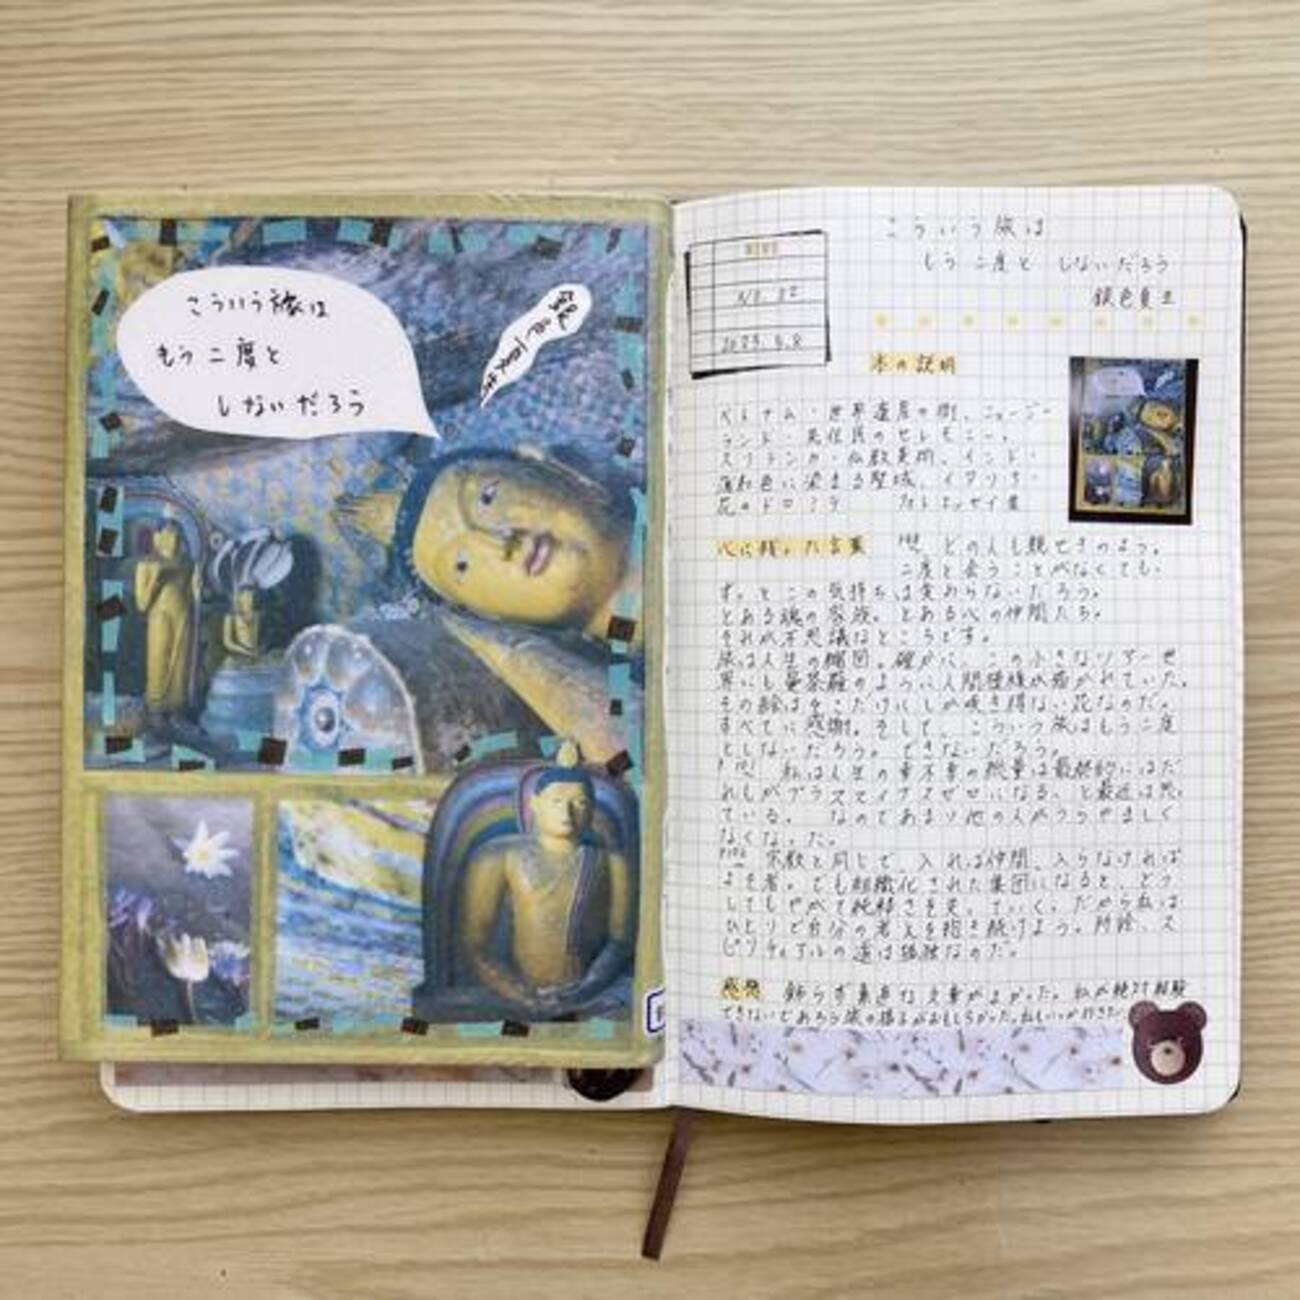 こういう旅は
もう二度と
しないだろう
銀色夏生
こういう旅は
もう二度と しないだろう
銀色夏生
本の説明
ベトナム・世界遺産の街、ニュージー
ランド・先住民のセレモニー、
スリランカ・仏教美術、インド・
色に染まる聖域、イタリア・
花のドロミテ フォトエッセイ集
心に残った言葉
どの人も親せきのよう。
二度と会うことがなくても、
ずっとこの気持ちは変わらないだろう。
とある魂の家族。とある心の仲間たち。
それが不思議なところです。
旅は人生の縮図。確かに、この小さなツアー世
界にも曼荼羅のように人間模様が描かれていた。
その絵はそこだけにしか咲き得ない花なのだ。
すべてに感謝。そして、こういう旅はもう二度
としないだろう。できないだろう。
私は人生の幸不幸の総量は最終的にはだ
れもがプラスマイナスゼロになる、と最近は思っ
ている。 なのであまり他の人がうらやましく
なくなった。
宗教と同じで、入れば仲間、入らなければ
よそ者。でも組織化された集団になると、どう
してもやがて純粋さを失っていく。だから私は
ひとりで自分の考えを抱き続けよう。所詮、ス
ピリチュアルの道は孤独なのだ。
感想 飾らず素直な文章がよかった。私が絶対経験
できないであろう旅の様子がおもしろかった。